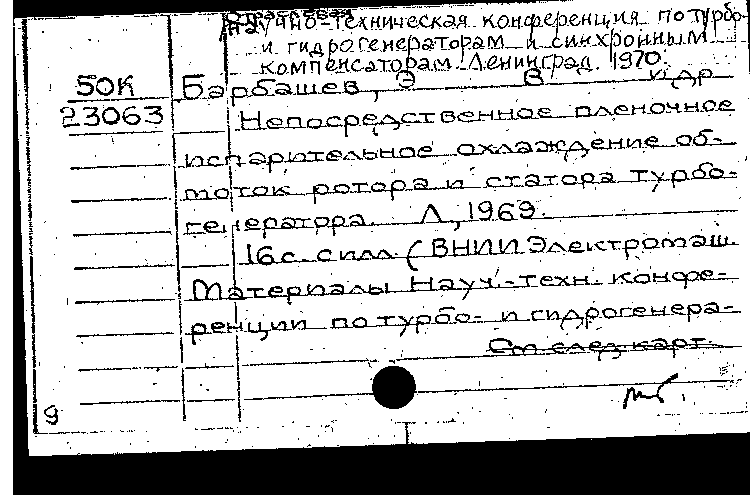 научно-техническая конференция по турбо-
и гидрогенераторам и синхронным
компенсаторам. Ленинград. 1970.
50К Барбашев, Э В и др
23063 Непосредственное пленочное
испарительное охлаждение об-
моток ротора и статора турбо-
генератора. Л., 1969.
16 с. с илл. (ВНИИ Электромаш.
Материалы Науч.-техн. конфе-
ренции по турбо- и гидрогенера-
См след карт.
9